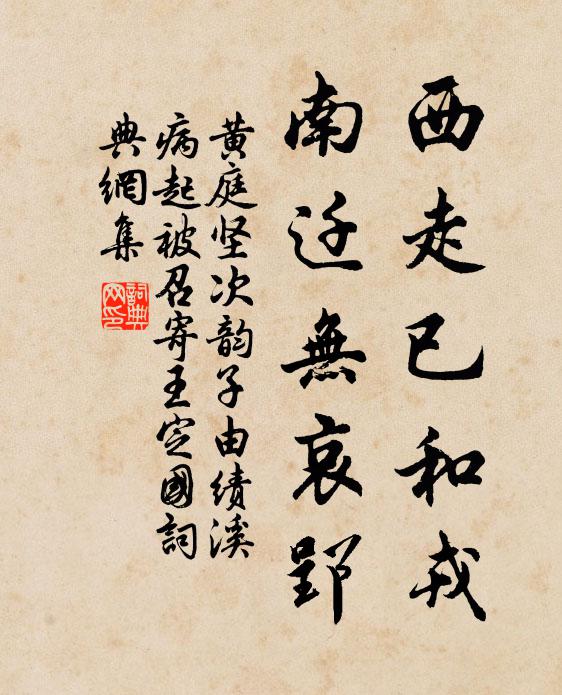 西走已和戎
南迁無哀郢
黄庭坚次韵子由績溪
病起被召寄王定國詞
典網集
詞典网印